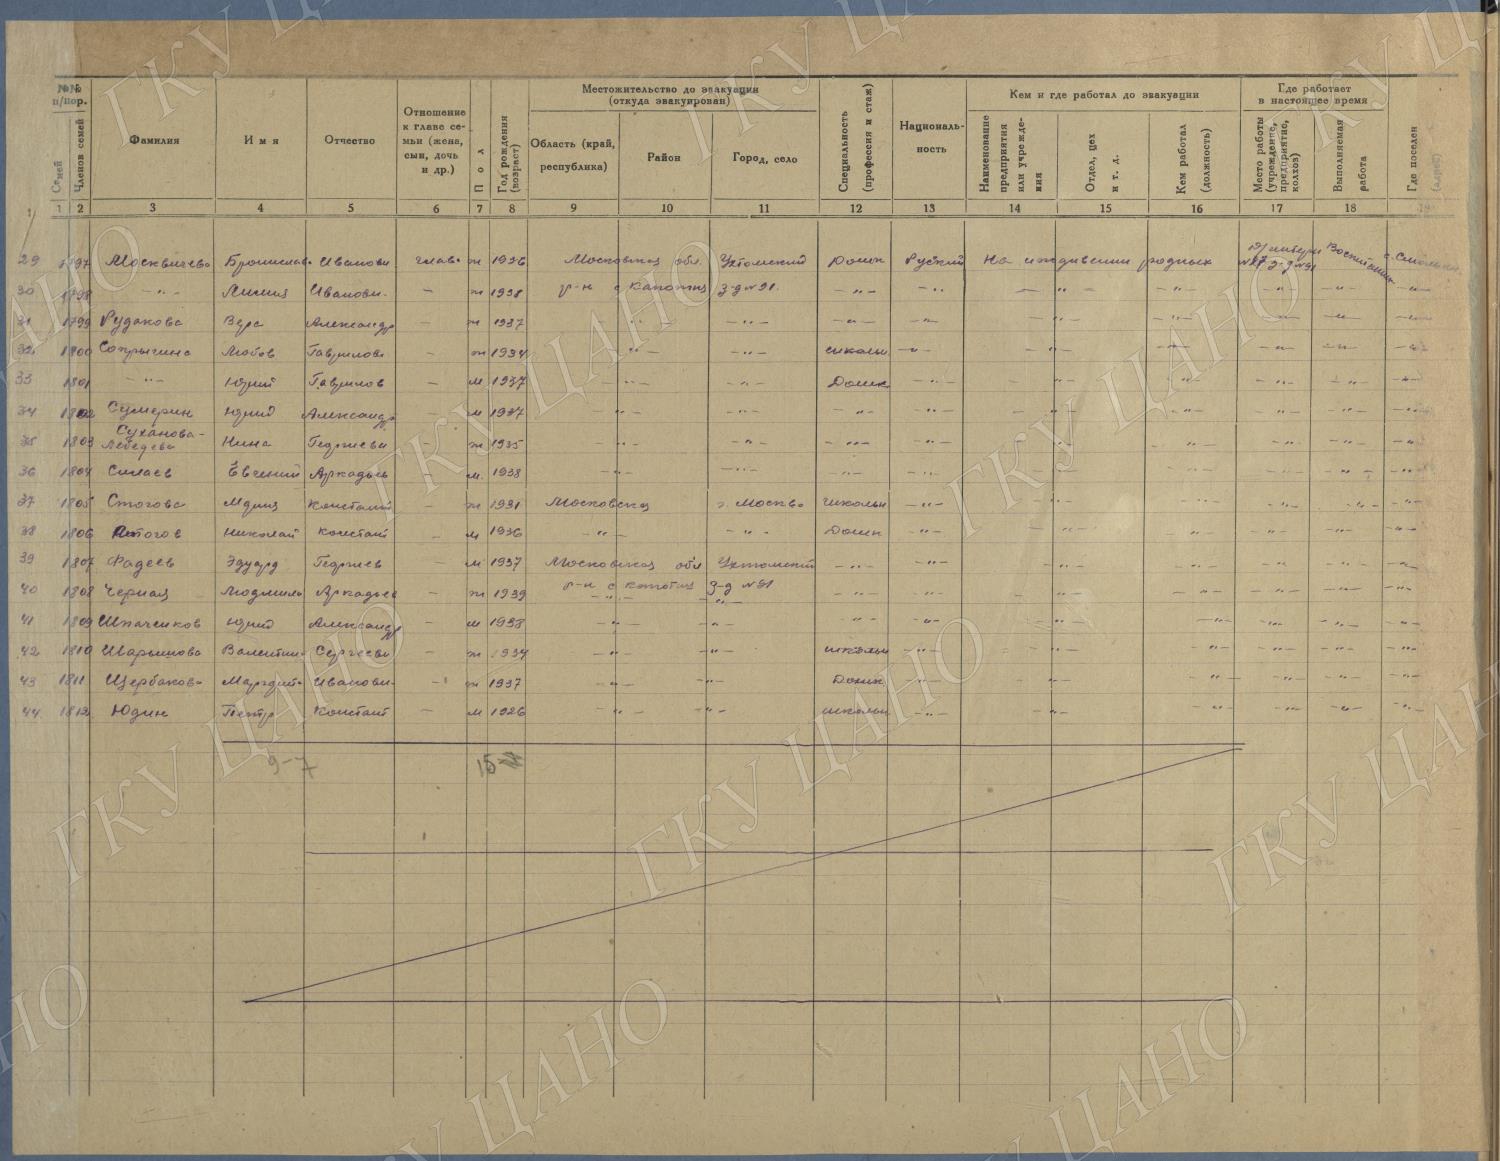 №№ п/пор.
Семей
Членов семей
Фамилия
Имя
Отчество
Отношение к главе семьи (жена, сын, дочь и др.)
Пол
Год рождения (возраст)
Местожительство до эвакуации (откуда эвакуирован)
Область (край, республика)
Район
Город, село
Специальность (профессия и стаж)
Националь-
ность
Кем и где работал до эвакуации
Наименование предприятия или учрежде-ния
Отдел, цех и т. д.
Кем работал (должность)
Где работает в настоящее время
Место работы (учреждение, предприятие, колхоз)
Выполняемая работа
Где поселен (адрес)
1 2 3 4 5 6 7 8 9 10 11 12 13 14 15 16 17 18 19
29 1797 Москвичева Бронислав. Иванови глав. ж 1936 Московская обл. Ухтомский Дошк Руский На иждивении родных Воспитанник
30 1798 -"- Лилия Иванови- - ж 1938 р-н с Капотня з-д №91. -"- -"- -"- -"- -"- -"- -"-
31 1799 Рудакова Вера Александр - ж 1937 -"- -"- -"- -"- -"- -"- -"- -"-
32 1800 Сапрыгина Любов Гаврилов - ж 1934 -"- -"- школьн -"- -"- -"- -"- -"- -"-
33 1801 -"- Юрий Гаврилов - м 1937 -"- -"- Дошк -"- -"- -"- -"- -"- -"-
34 1802 Сумерин Юрий Александр - м 1937 -"- -"- -"- -"- -"- -"- -"- -"- -"-
35 1803 Суханова-
Лебедева Нина Георгиеви - ж 1935 -"- -"- -"- -"- -"- -"- -"- -"- -"-
36 1804 Силаев Евгений Аркадьев - м. 1938 -"- -"- -"- -"- -"- -"- -"- -"- -"-
37 1805 Стогова Мария Констант - ж 1931 Московская г. Москва школьн -"- -"- -"- -"- -"-
38 1806 Стогов Николай Констант - м 1936 -"- -"- Дошк -"- -"- -"- -"- -"- -"-
39 1807 Фадеев Эдуард Георгиев - м 1937 Московская обл Ухтомский -"- -"- -"- -"- -"- -"- -"-
40 1808 Черная Людмила Аркадьев - ж 1939 р-н с Капотня з-д №91 -"- -"- -"- -"- -"- -"- -"-
41 1809 Шпачсиков Юрий Александр - м 1938 -"- -"- -"- -"- -"- -"- -"- -"- -"-
42 1810 Шарышова Валентин Сергееви - ж 1934 -"- -"- школьн -"- -"- -"- -"- -"- -"-
43 1811 Щербакова Маргарит Иванови- - ж 1937 -"- -"- Дошк -"- -"- -"- -"- -"- -"-
44 1812 Юдин Петр Констант - м 1926 -"- -"- школьн -"- -"- -"- -"- -"- -"-
9-7 15
ГКУ ЦАНО